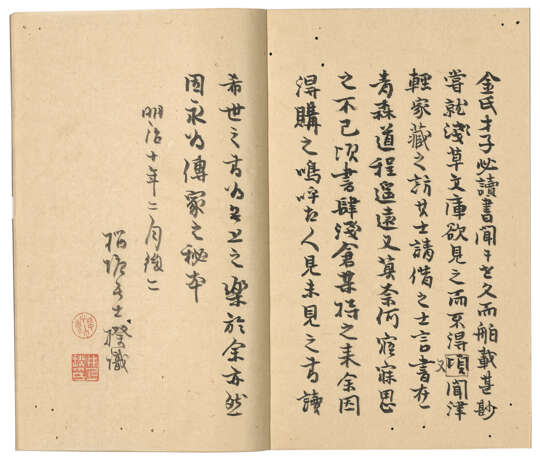 金氏才子必讀書聞之者久而舶載甚尠
嘗就淺草文庫欲見之而不得頃聞津
輕家藏之訪其士請借之士言書在
青森道程遥遠又莫奈何寤寐思
之不已頃書肆淺倉某持之来余因
得購之嗚呼古人見未見之書讀
又
希世之書為無上之樂於余亦然
因永為傳家之秘本
明治十年二月後二
士
識